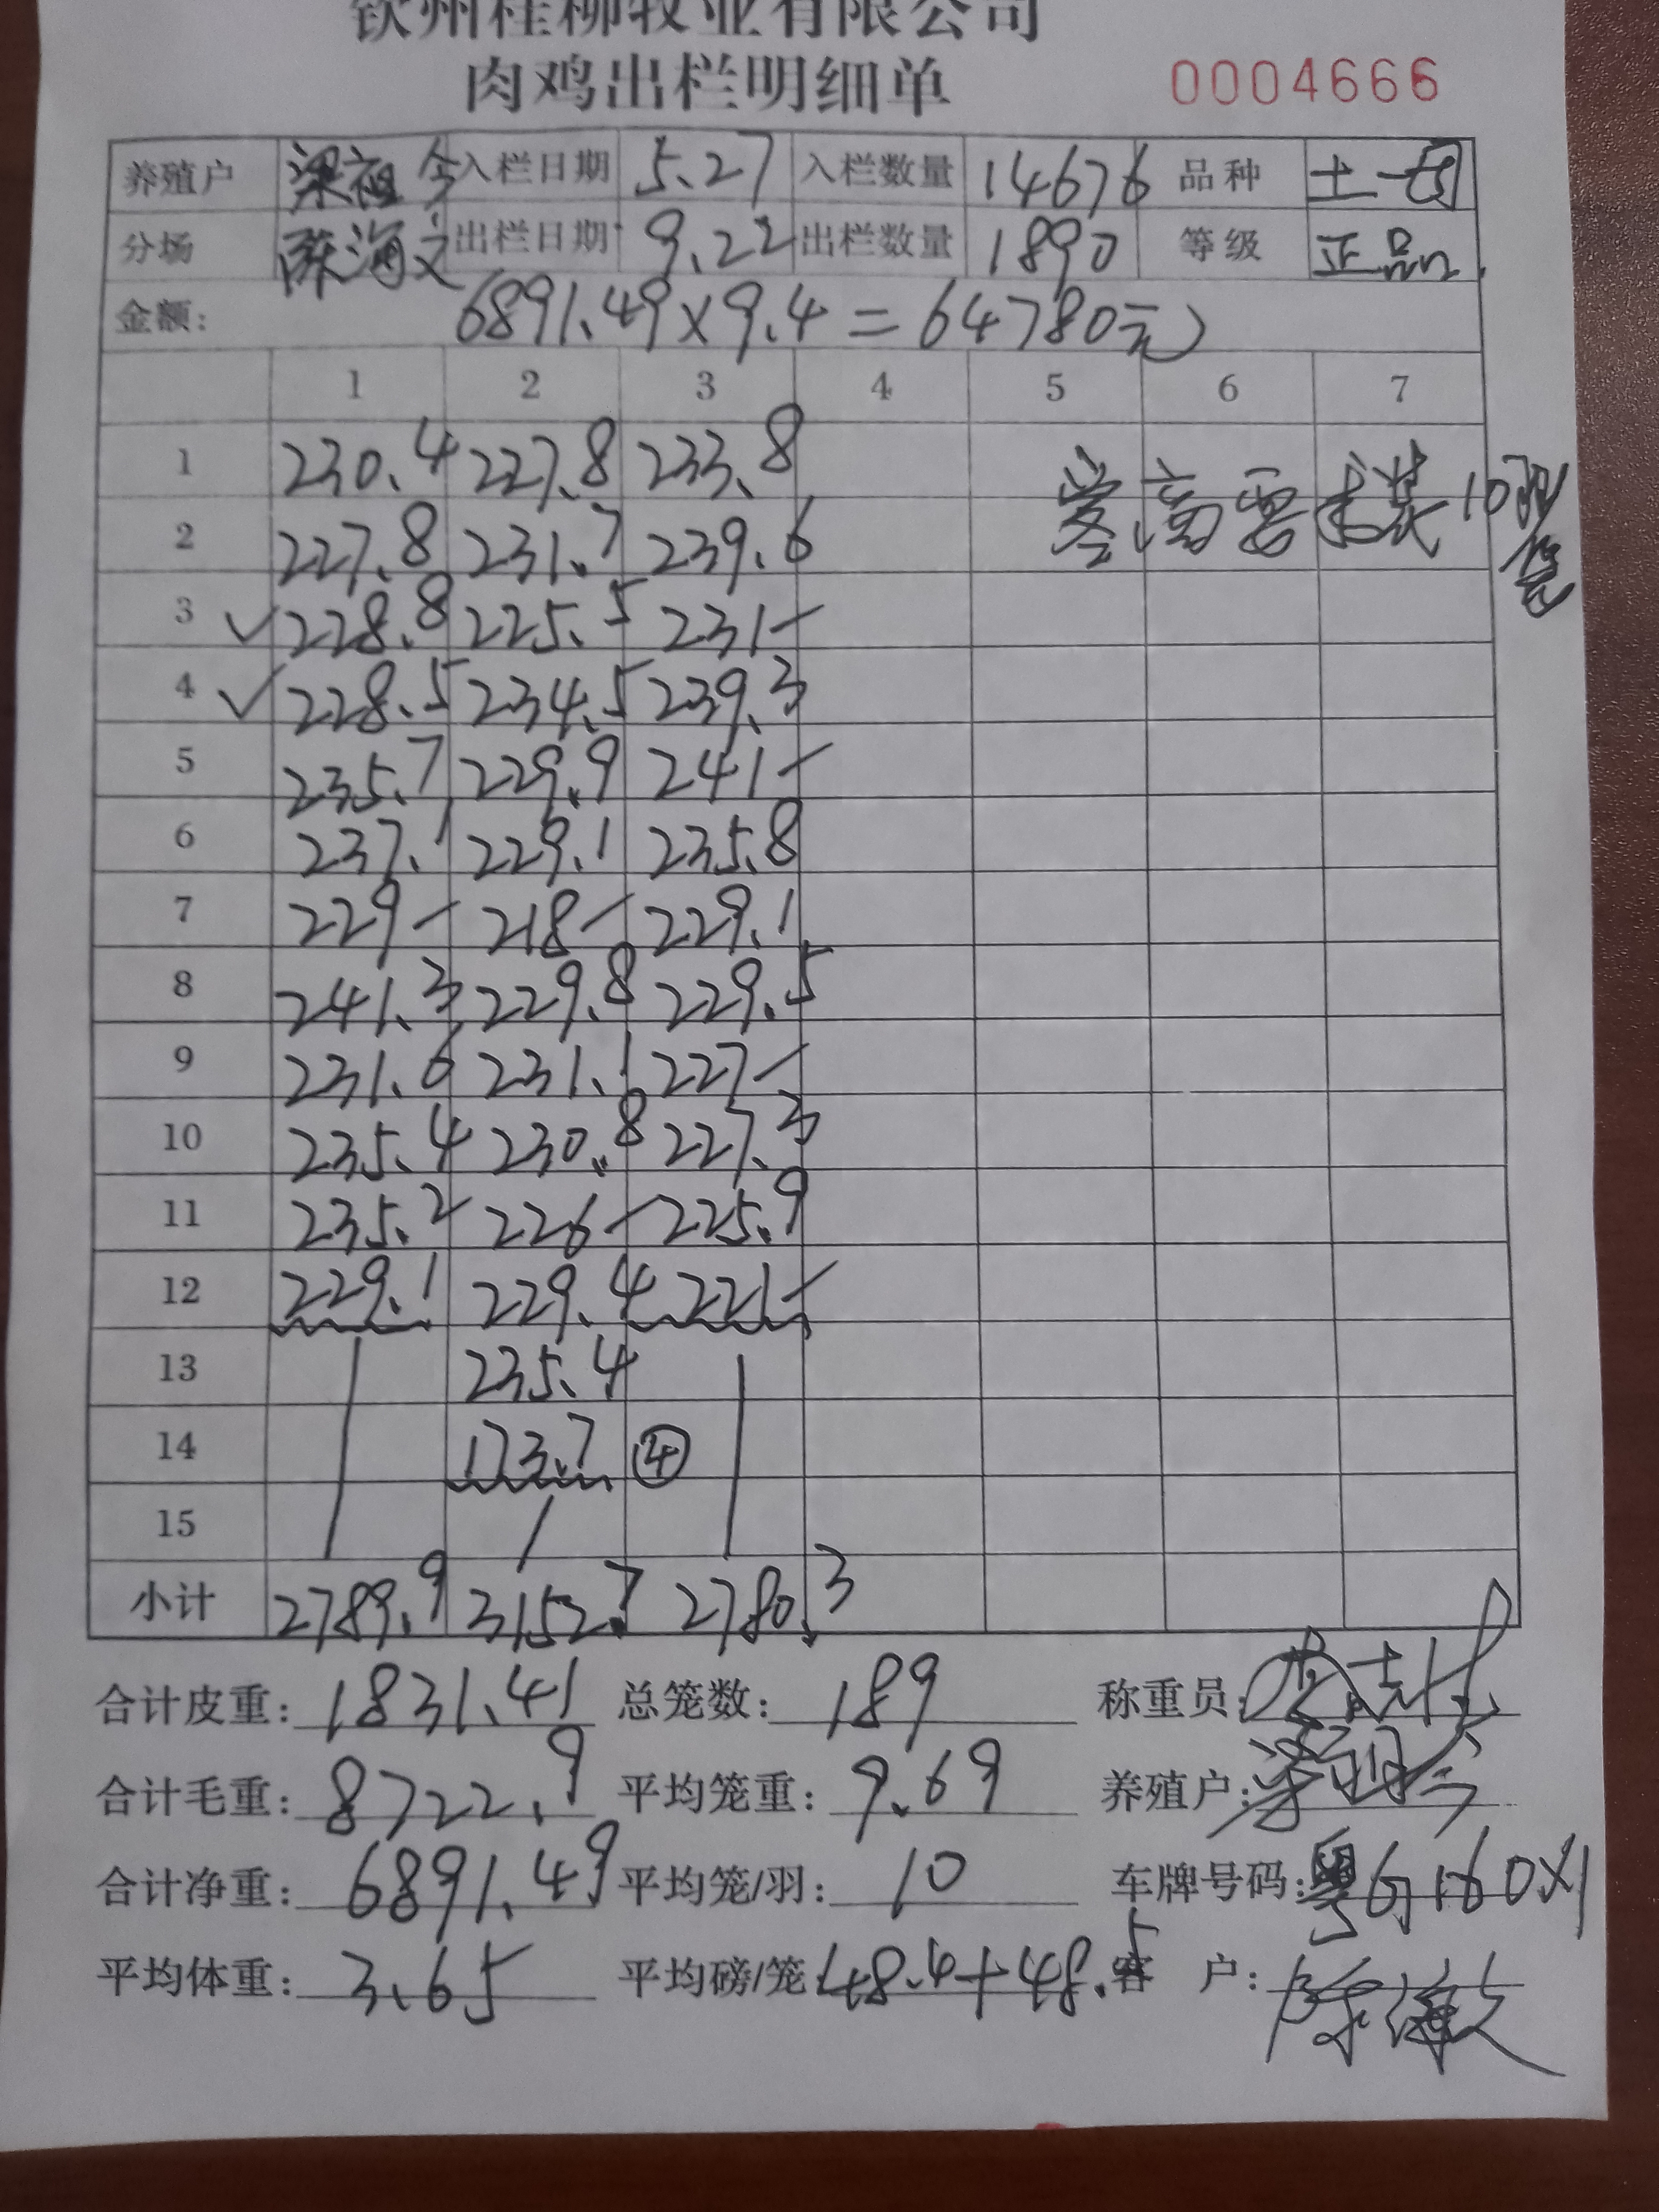 钦州桂柳牧业有限公司
肉鸡出栏明细单 0004666
养殖户 梁祖今 入栏日期 5.27 入栏数量 14676 品种 土一
分场 陈海文 出栏日期 9.22 出栏数量 1890 等级 正品
金额: 6891.49×9.4=64780元
1 2 3 4 5 6 7
1 230.4 227.8 233.8
2 227.8 231.7 239.6 要求装10羽/笼
3 ✓ 228.8 225.5 231-
4 ✓ 228.5 234.5 239.3
5 235.7 229.9 241-
6 237.1 229.1 235.8
7 229- 218- 229.1
8 241.3 229.8 229.5
9 231.6 231.1 227-
10 235.4 230.8 227.3
11 235.2 226- 225.9
12 229.1 229.4 221-
13 235.4
14 173.7 ④
15
小计 2789.9 3152.7 2780.3
合计皮重: 1831.41 总笼数: 189 称重员:
合计毛重: 8722.9 平均笼重: 9.69 养殖户: 梁祖今
合计净重: 6891.49 平均笼/羽: 10 车牌号码: 粤G160X1
平均体重: 3.65 平均磅/笼: 48.4+48.5 客 户: